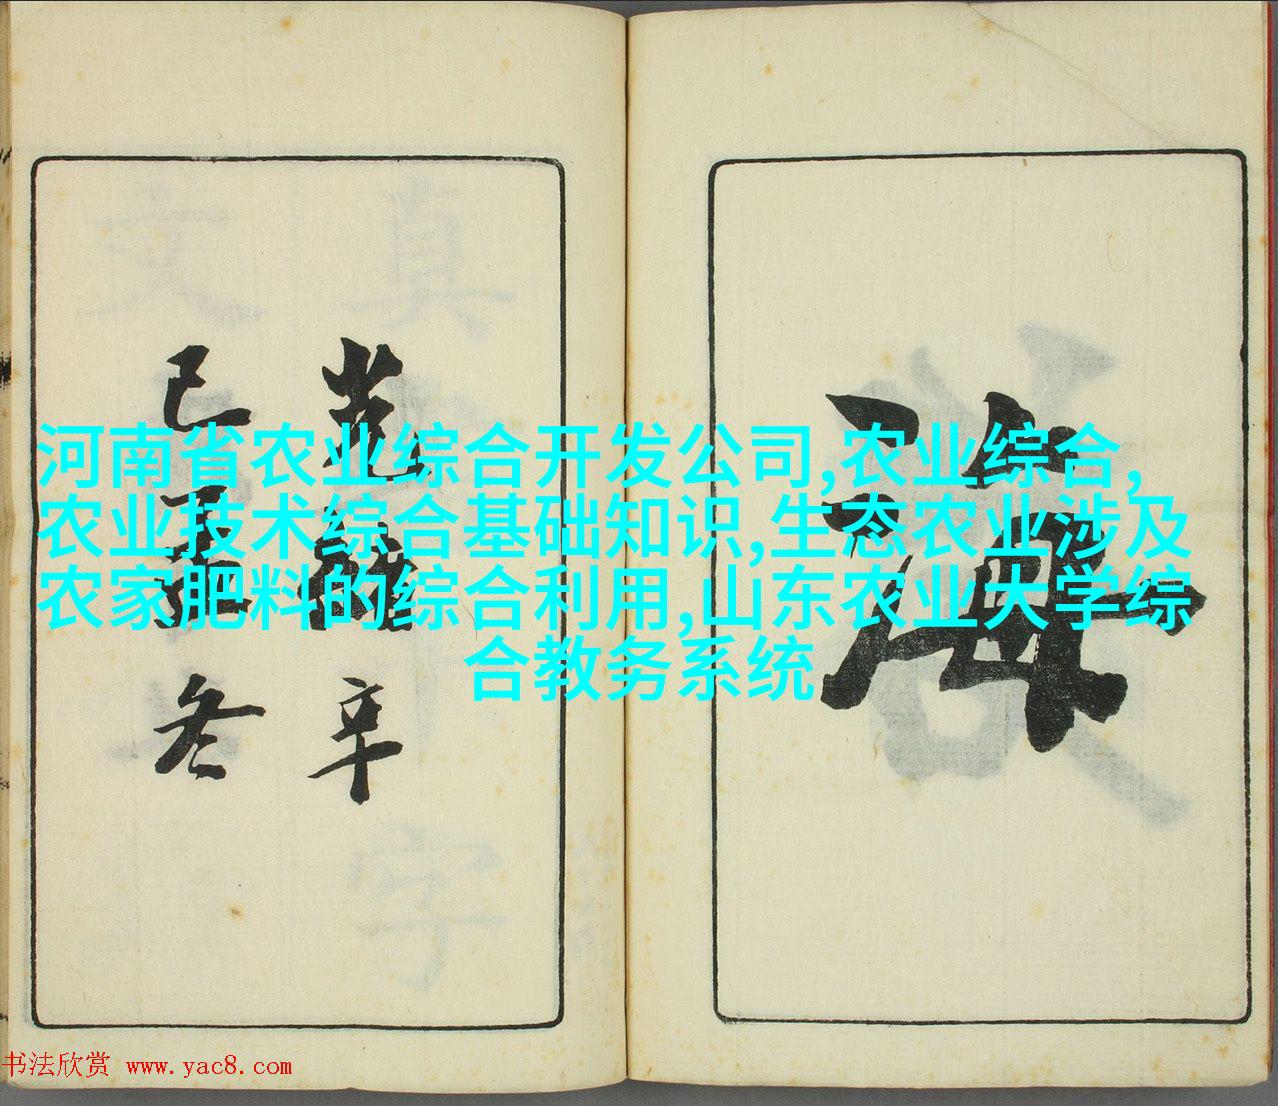 河南省农业综合开发公司,农业综合,
农业技术综合基础知识,生态农业涉及
农家肥料的综合利用,山东农业大学综
合教务系统
海
冬
书法欣赏 www.yac8.com